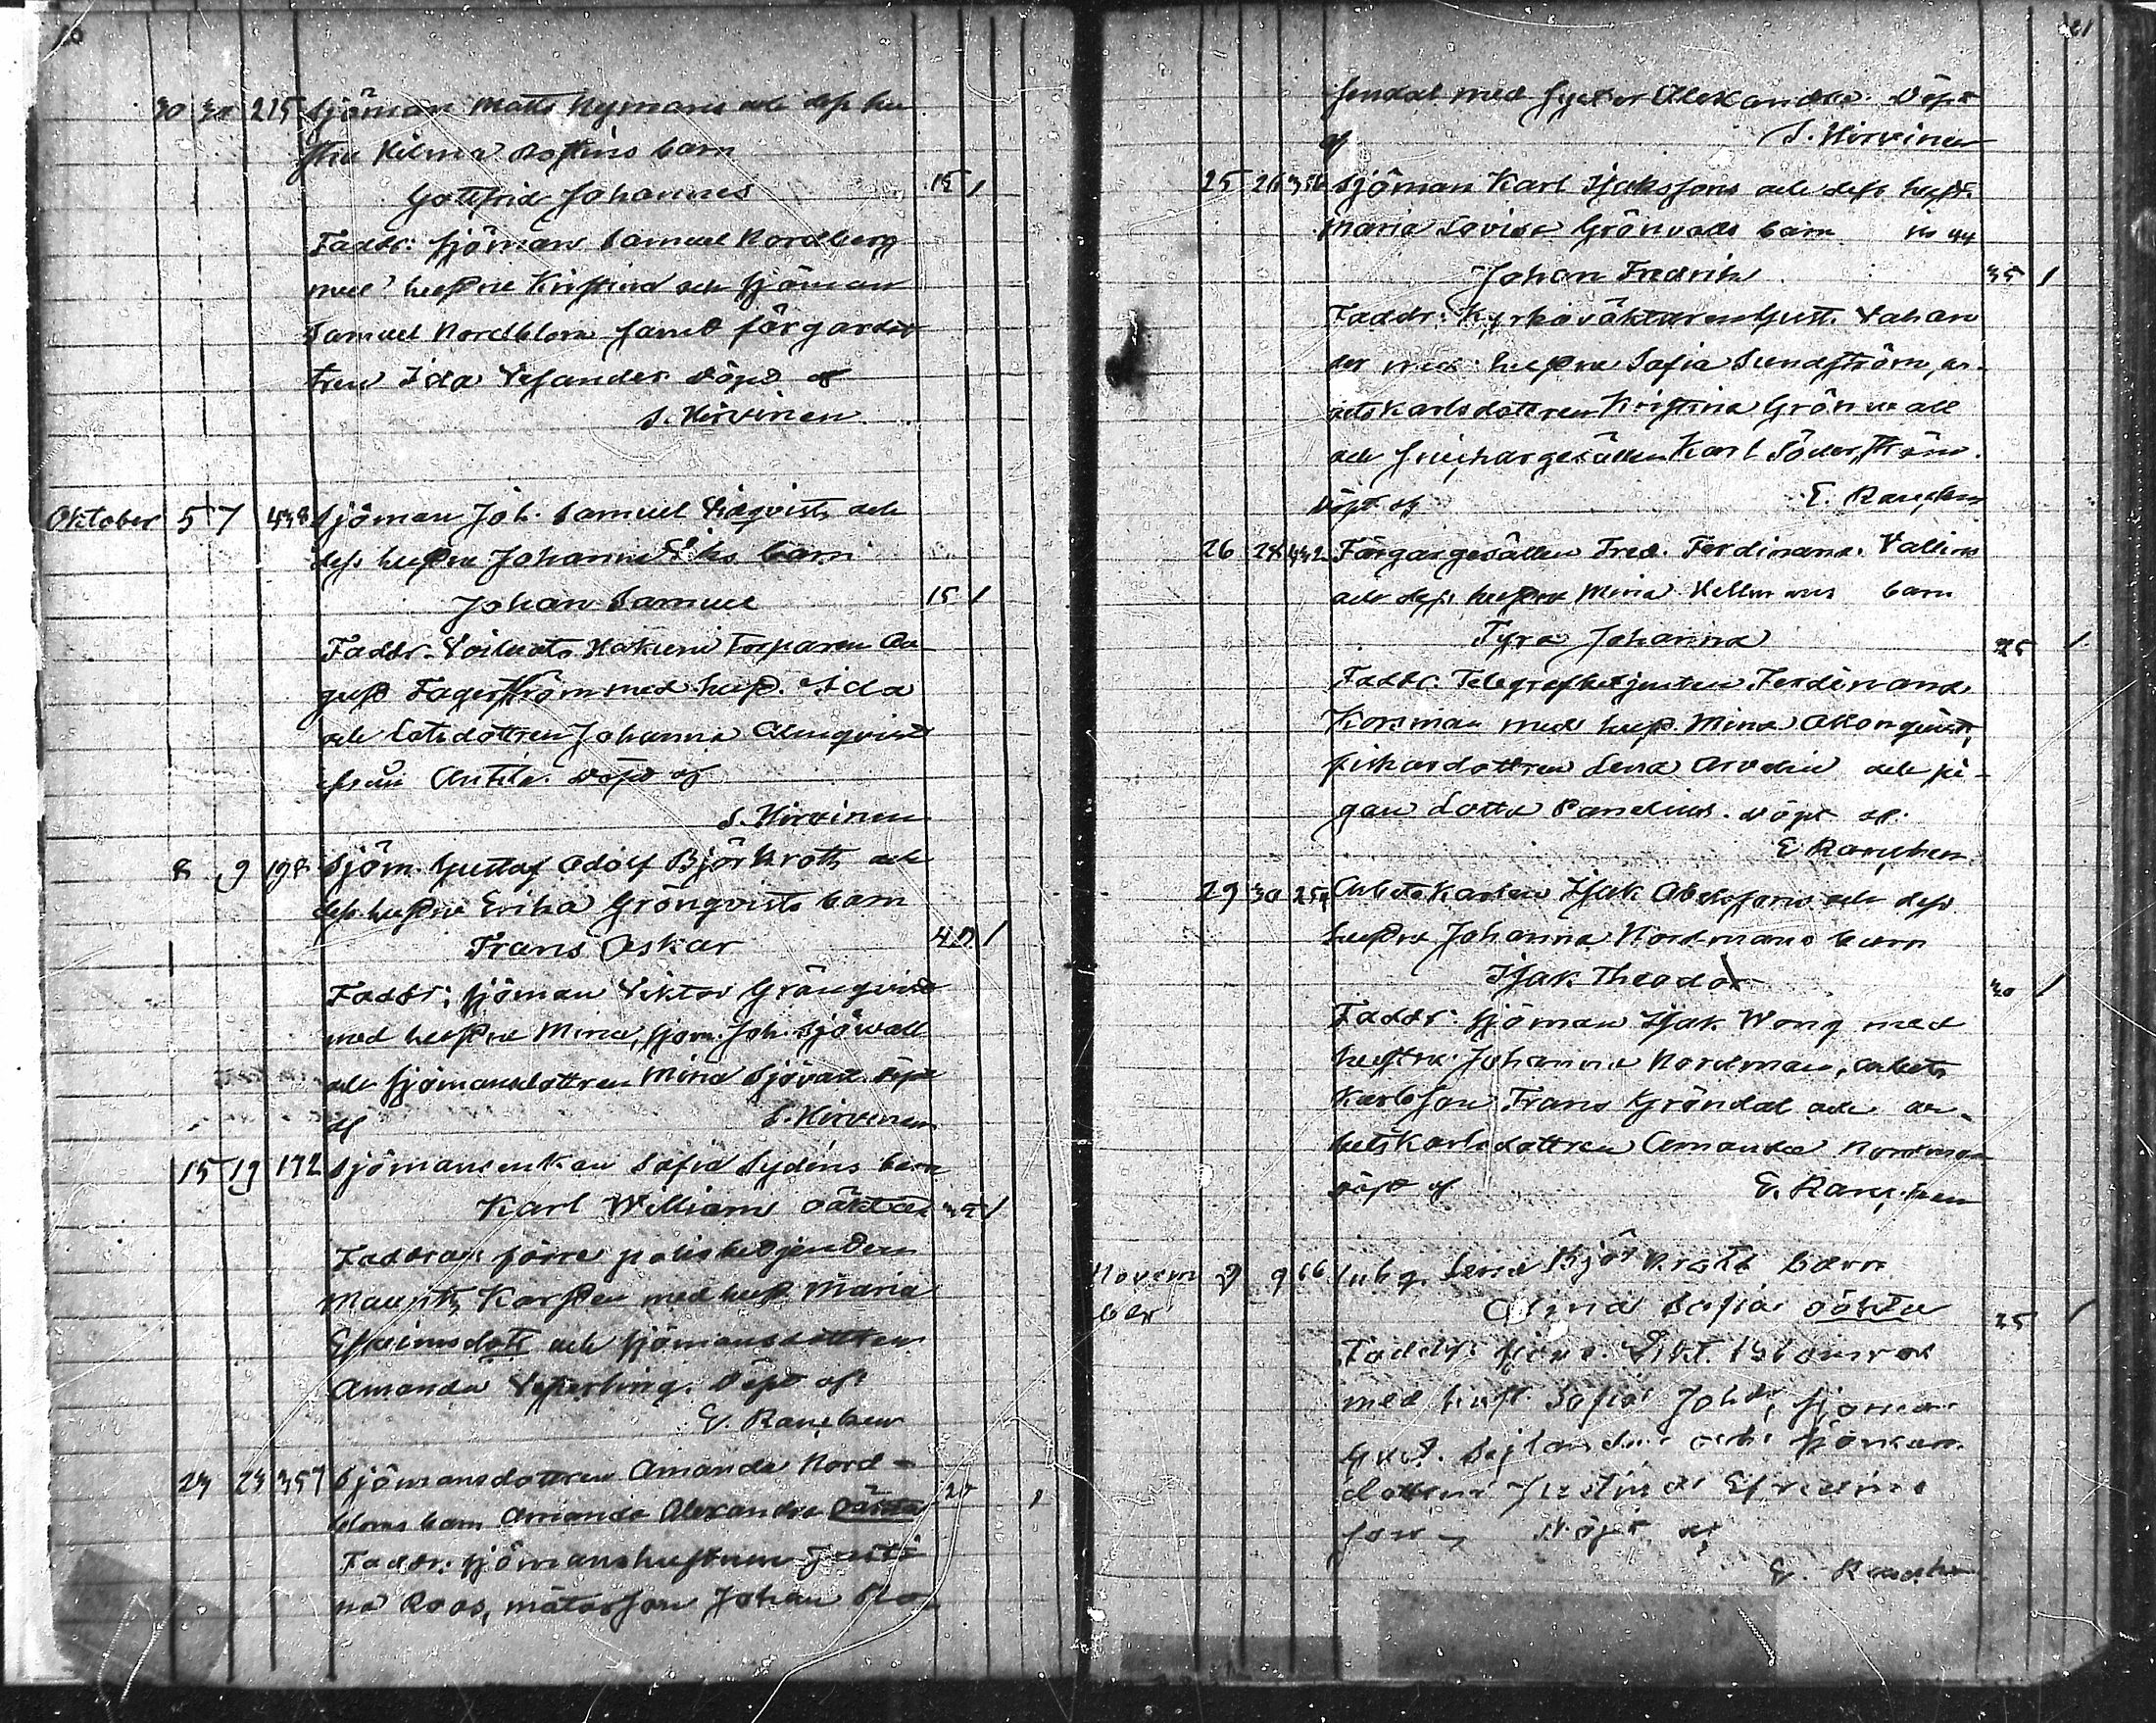 30 30 215 Sjöman Matts Nymans och dess hu
stru Hilma barn
Gottfrid Johannes 15 1
Faddr: sjöman Samuel Nordberg
med hustru Kristina och sjöman
Samuel Nordblom samt färgardot
tren Ida Vesander. Döpt af
S. Hirvinen
Oktober 5 7 438 Sjöman Joh. Samuel och
dess hustru Johanna barn
Johan Samuel 15 1
Faddr. Torparen Au
gust Fagerström med hust. Ida
och Lotsdottren Johanna Almqvist
från Anttila. Döpt af
S. Hirvinen
8 9 198 Sjöm. Gustaf Adolf Björkroth och
dess hustru Erika Grönqvists barn
Frans Oskar 40 1
Faddr: sjöman Viktor Grönqvist
med hustru Mina, sjöm. Joh. Sjövall
och sjömansdottren Mina Sjövall. Döpt
af S. Hirvinen
15 19 172 Sjömansenkan Sofia Sydéns barn
Karl William oäkta 1
Faddrar: förre polisbetjenten
Mauritz Karsten med hust. Maria
Efraimsdott och sjömansdottren
Amanda Vesterling. Döpt af
E. Rancken
23 23 357 Sjömansdottren Amanda Nord-
bloms barn Amanda Alexandra oäkta 25 1
Faddr: sjömanshustrun Justi
na Roos, mätarson Johan Ro
21
sendal med syster Alexandra. Döpt
af S. Hirvinen
25 26 Sjöman Karl Isakssons och dess hustr.
Maria Lovisa Grönvalls barn
Johan Fredrik 35 1
Faddr: Kyrkoväktaren Gust. Valan
der med hustru Sofia Sundström, ar-
betskarlsdottren Kristina Grönvall
och snickargesällen Karl Söderström.
Döpt af E. Rancken
26 28 442 Färgargesällen Fred. Ferdinand Vallins
och dess hustru Mina Hellmans barn
Tyra Johanna 25 1
Faddr. Telegrafbetjenten Ferdinand
Korsman med hust. Mina
fiskardottren Lena och pi-
gan Lotta Panelius. Döpt af
E. Rancken
29 30 Arbetskarlen Isak Abelssons och dess
hustru Johanna Nordmans barn
Isak Theodor 30 1
Faddr: sjöman Isak Wong med
hustru Johanna Nordman, arbets
karlsson Frans Gröndal och ar-
betskarlsdottren Amanda Nordman
Döpt af E. Rancken
Novem 9 66 Inhg. Lena Björkroths barn
ber
Alma Sofia oäkta 25 1
Faddr: sjöm. Vikt.
med hust. Sofia Johdr, sjöman
Gust. och sjöman
dottren Justina Efraims
son. Döpt af
E. Rancken